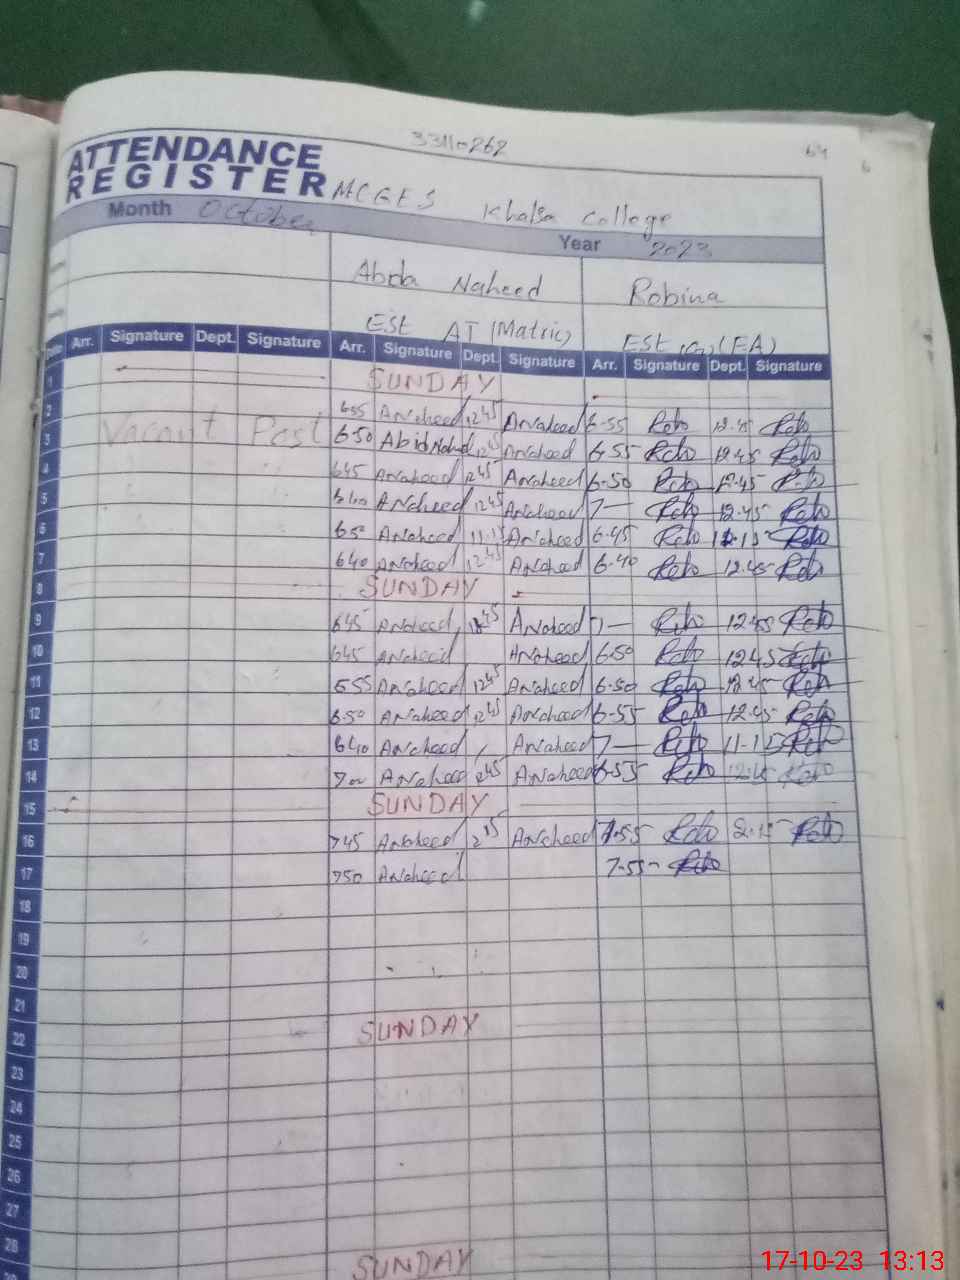 33110262
64
ATTENDANCE
REGISTER MCGES Khalsa College
Month October Year 2023
Abda Naheed Robina
EST AT (Matric) EST (FA)
Arr. Signature Dept. Signature Arr. Signature Dept. Signature Arr. Signature Dept. Signature
1 SUNDAY
2 655 Anaheed 1245 Anaheed 6-55 12.45
3 Vacant Post 650 Abid Nahed Anaheed 6-55 12.45
4 645 Anaheed 1245 Anaheed 6-50 12.45
5 640 Anaheed 1245 Anaheed 7— 12.45
6 650 Anaheed 11.15 Anaheed 6.45
7 640 Anaheed 1245 Anaheed 6-40 12.45
8 SUNDAY
9 645 Anaheed 1245 Anaheed 7— 12.45
10 645 Anaheed Anaheed 6-50 12.45
11 655 Anaheed 1245 Anaheed 6-50 12.45
12 6.50 Anaheed 1245 Anaheed 6-55 12.45
13 640 Anaheed Anaheed 7— 11-15
14 700 Anaheed 1245 Anaheed 6-55 12.45
15 SUNDAY
16 745 Anaheed 215 Anaheed 7.55 2.15
17 750 Anaheed 7-55
18
19
20
21
22 SUNDAY
23
24
25
26
27
28
SUNDAY
17-10-23 13:13